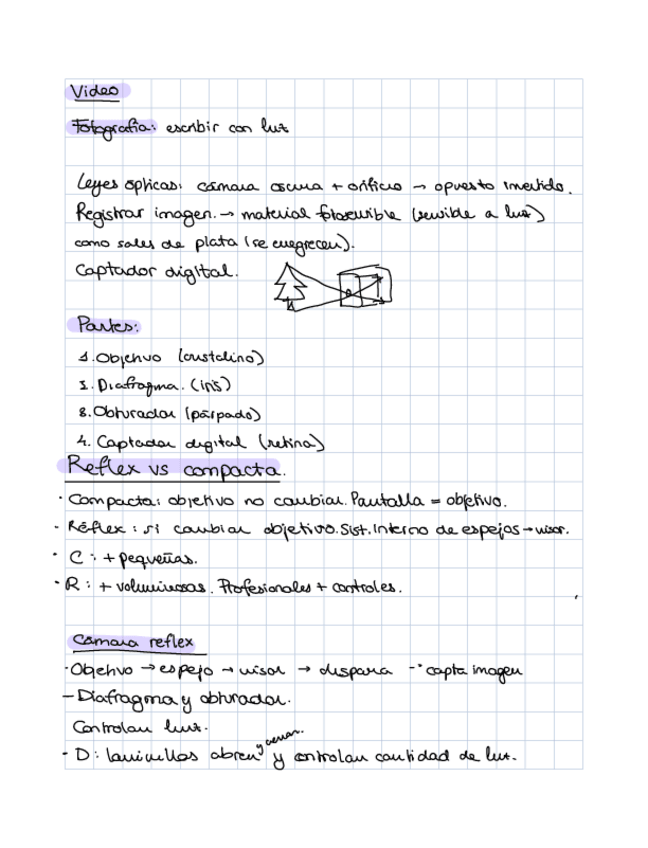 Video
Fotografía: escribir con luz
Leyes ópticas: cámara oscura + orificio → opuesto invertido.
Registrar imagen. → material fotosensible (sensible a luz)
como sales de plata (se ennegrecen).
Captador digital.
Partes:
1. Objetivo (cristalino)
2. Diafragma. (iris)
3. Obturador (párpado)
4. Captador digital (retina)
Reflex vs compacta.
· Compacta: objetivo no cambiar. Pantalla = objetivo.
- Réflex: si cambiar objetivo. Sist. Interno de espejos → visor.
· C: + pequeñas.
· R: + voluminosas. Profesionales + controles.
Cámara reflex
· Objetivo → espejo → visor → dispara → capta imagen
- Diafragma y obturador.
Controlan luz.
- D: laminillas abren y cierran. y controlan cantidad de luz.